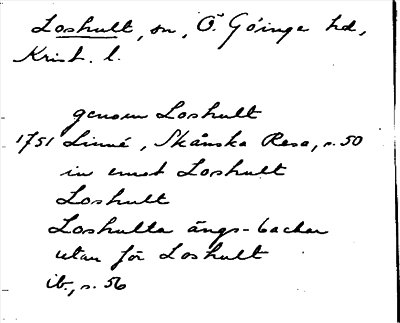 Loshult, sn, Ö. Göinge hd,
Krist. l.
genom Loshult
1751 Linné, Skånska Resa, s. 50
in emot Loshult
Loshult
Loshulta ängs-backar
utan för Loshult
ib., s. 56